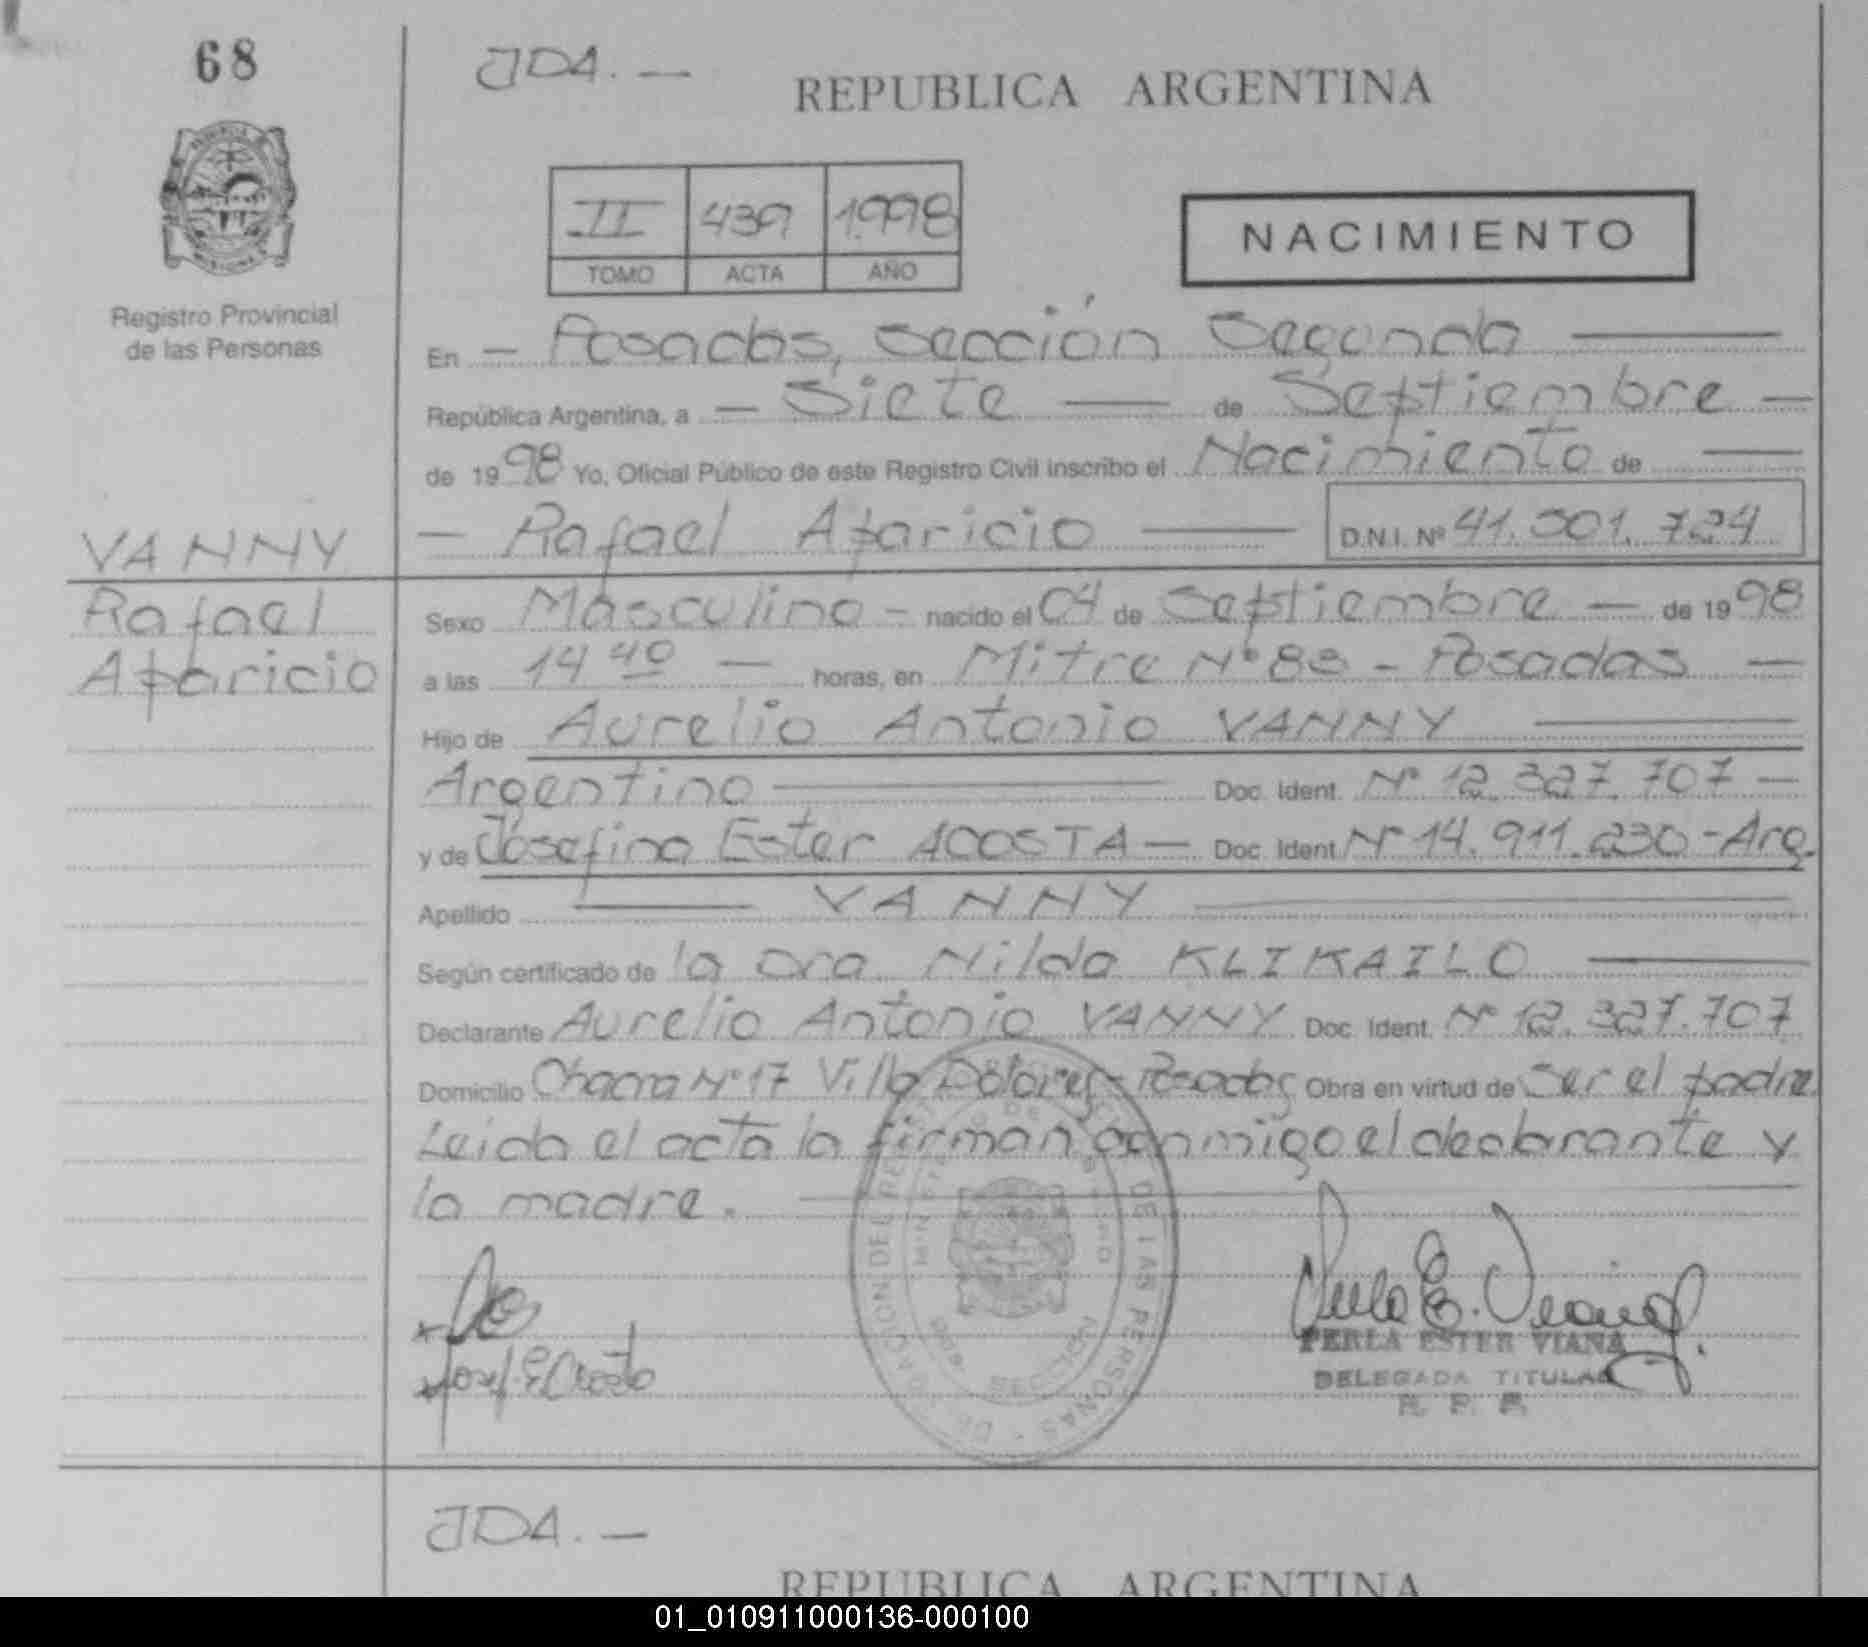 68
JDA. —
REPUBLICA ARGENTINA
II 439 1.998
TOMO ACTA AÑO
NACIMIENTO
Registro Provincial
de las Personas
En — Posadas, Sección Segunda —
República Argentina, a — Siete — de Septiembre —
de 1998 Yo, Oficial Público de este Registro Civil inscribo el Nacimiento de —
— Rafael Aparicio — D.N.I. Nº 41.301.724
VANNY
Rafael
Aparicio
Sexo Masculino — nacido el 04 de Septiembre — de 1998
a las 14 40 — horas, en Mitre Nº 88 - Posadas —
Hijo de Aurelio Antonio VANNY —
Argentino — Doc. Ident. Nº 12.327.707 —
y de Josefina Ester ACOSTA — Doc. Ident. Nº 14.911.230 - Arg.
Apellido — VANNY —
Según certificado de la Dra. Nilda KLIKAILO —
Declarante Aurelio Antonio VANNY Doc. Ident. Nº 12.327.707
Domicilio Chacra Nº 17 Villa Dolores - Posadas Obra en virtud de Ser el padre
Leida el acta la firman conmigo el declarante y
la madre. —
Josef. E. Acosta
PERLA ESTER VIANA
DELEGADA TITULAR
R. P. P.
DE LAS PERSONAS
JDA. —
REPUBLICA ARGENTINA
01_010911000136-000100